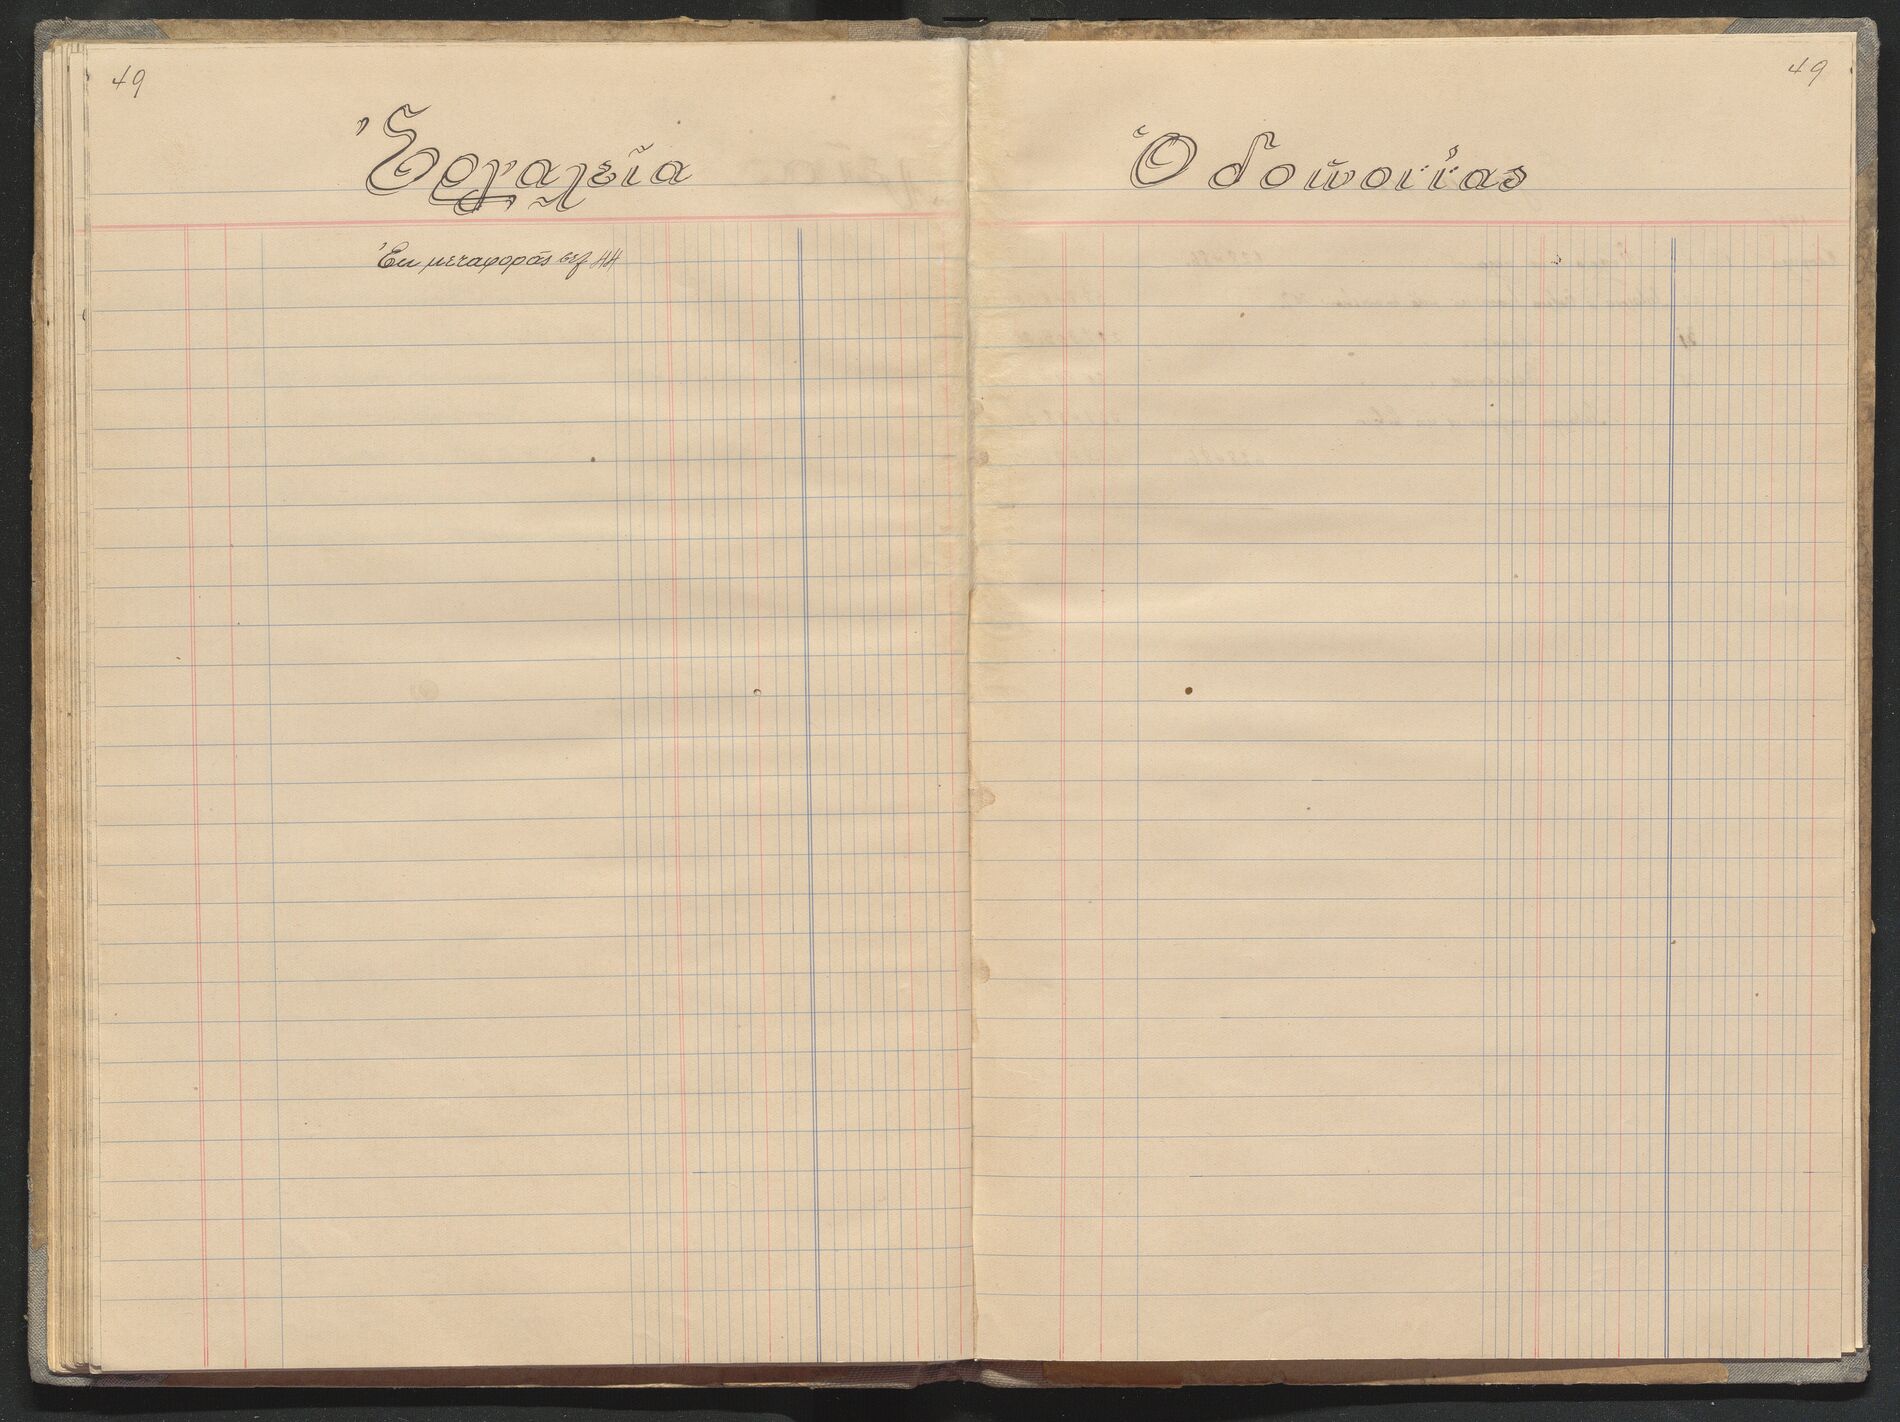 49
Ἐργαλεῖα
Ἐκ μεταφορᾶς σελ 44
49
Ὁδοποιΐας